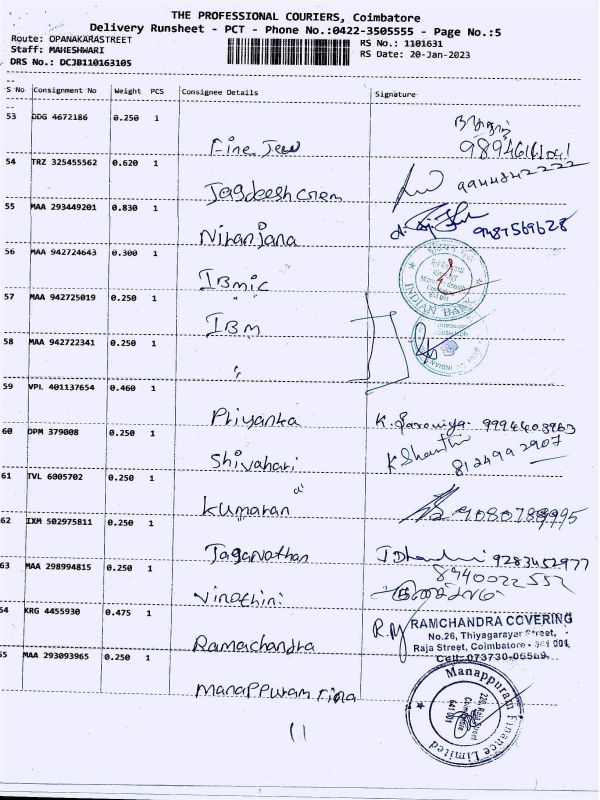 THE PROFESSIONAL COURIERS, Coimbatore
Delivery Runsheet - PCT - Phone No.:0422-3505555 - Page No.:5
Route: OPANAKARASTREET
Staff: MAHESHWARI
DRS No.: DCJB110163105
RS No.: 1101631
RS Date: 20-Jan-2023
S No Consignment No Weight PCS Consignee Details Signature
53 DDG 4672186 0.250 1
Fine Jew
54 TRZ 325455562 0.620 1
Jagdeesh Chem 9944842222
55 MAA 293449201 0.830 1
Niranjana 9487569628
56 MAA 942724643 0.300 1
IBmic
INDIAN BANK
57 MAA 942725019 0.250 1
IBM
58 MAA 942722341 0.250 1
"
59 VPL 401137654 0.460 1
Priyanka K. Saraniya. 9994408963
60 DPM 379008 0.250 1
Shivahari K Shanthi 8124992907
61 TVL 6005702 0.250 1
Kumaran 9080789995
62 IXM 502975811 0.250 1
Jaganathan 9283452977
63 MAA 298994815 0.250 1
8940022552
Vinothini
64 KRG 4455930 0.475 1
Ramachandra
R.M RAMCHANDRA COVERING
No.26, Thiyagarayar Street,
Raja Street, Coimbatore - 641 001.
Cell: 073730-06569
65 MAA 293093965 0.250 1
Manappuram Fina
Manappuram Finance Limited
641 001